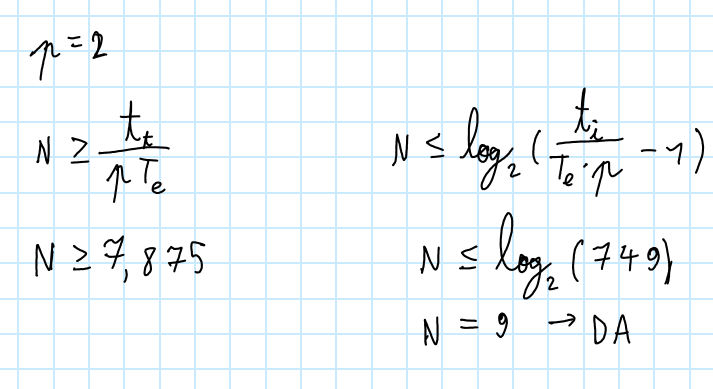 p = 2
N ≥ t_t / (p T_e)
N ≥ 7,875
N ≤ log_2 ( t_i / (T_e · p) − 1 )
N ≤ log_2 (749)
N = 9 → DA